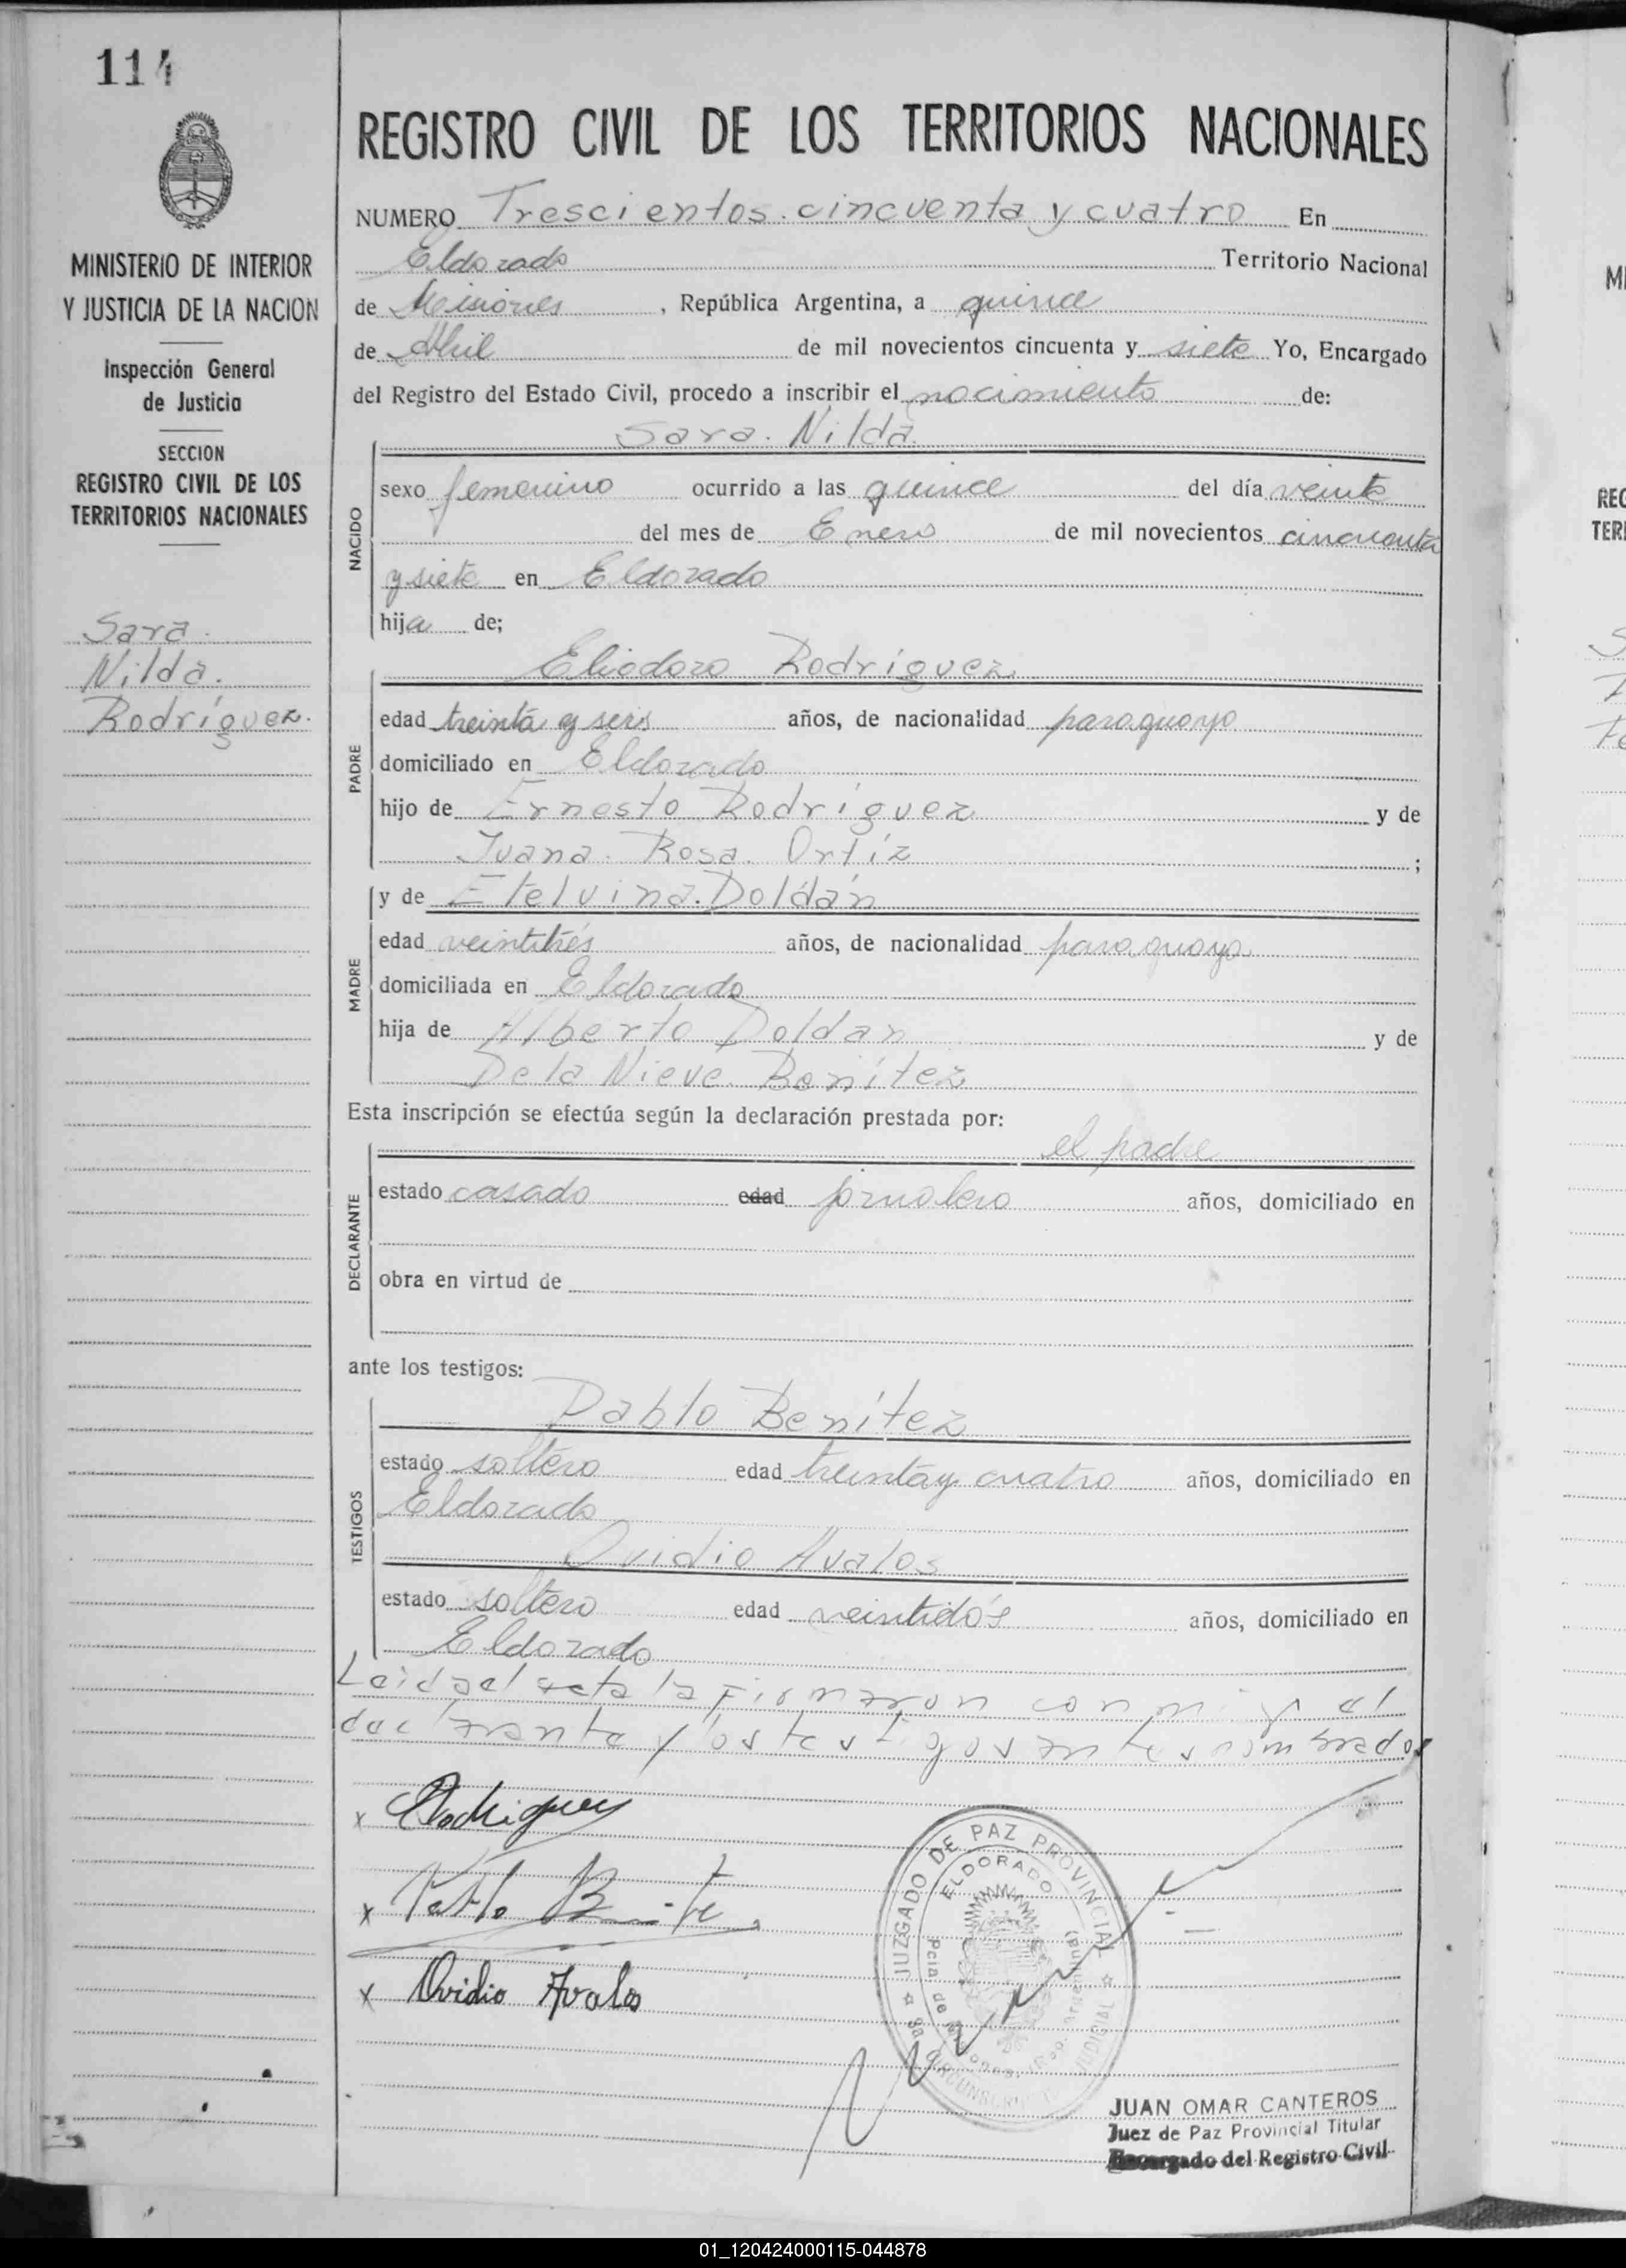 114
MINISTERIO DE INTERIOR
Y JUSTICIA DE LA NACION
Inspección General
de Justicia
SECCION
REGISTRO CIVIL DE LOS
TERRITORIOS NACIONALES
Sara
Nilda.
Rodríguez.
REGISTRO CIVIL DE LOS TERRITORIOS NACIONALES
NUMERO Trescientos cincuenta y cuatro En
Eldorado Territorio Nacional
de Misiones, República Argentina, a quince
de Abril de mil novecientos cincuenta y siete Yo, Encargado
del Registro del Estado Civil, procedo a inscribir el nacimiento de:
Sara. Nilda
NACIDO
sexo femenino ocurrido a las quince del día veinte
del mes de Enero de mil novecientos cincuenta
y siete en Eldorado
hija de;
PADRE
Eliodoro Rodríguez
edad treinta y seis años, de nacionalidad paraguayo
domiciliado en Eldorado
hijo de Ernesto Rodríguez y de
Juana. Rosa. Ortíz ;
MADRE
y de Etelvina. Doldán
edad veintitrés años, de nacionalidad paraguaya
domiciliada en Eldorado
hija de Alberto Doldan y de
De la Nieve Benítez
Esta inscripción se efectúa según la declaración prestada por:
DECLARANTE
el padre
estado casado edad jornalero años, domiciliado en
obra en virtud de
ante los testigos:
TESTIGOS
Pablo Benítez
estado soltero edad treinta y cuatro años, domiciliado en
Eldorado
Ovidio Avalos
estado soltero edad veintidós años, domiciliado en
Eldorado
Leida el acta la firmaron conmigo el
declarante y los testigos antes nombrados
x Rodriguez
x Pablo Benite
x Ovidio Avalos
JUZGADO DE PAZ PROVINCIAL
ELDORADO
Pcia. de
JUDICIAL
JUAN OMAR CANTEROS
Juez de Paz Provincial Titular
Encargado del Registro Civil
M
REG
TER
01_120424000115-044878